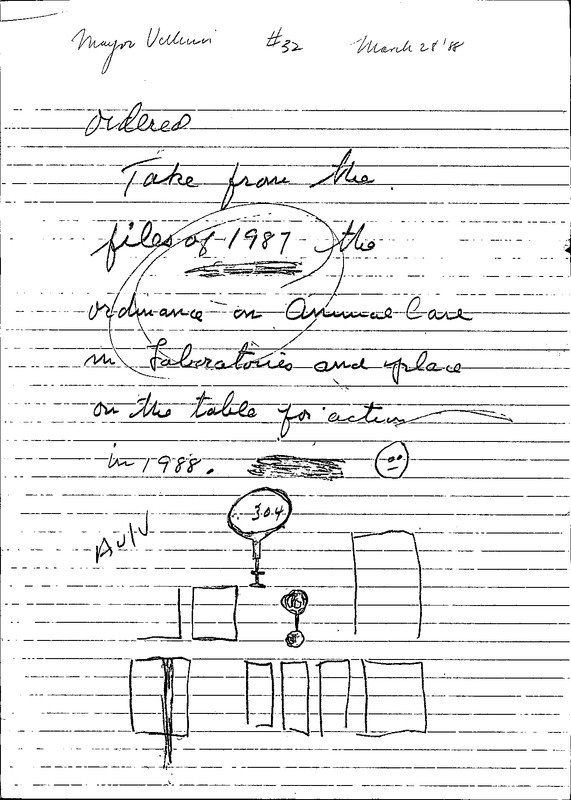 Mayor Vellucci #32 March 28 '88
ordered
Take from the
files of 1987 the
ordinance on Animal Care
in Laboratories and place
on the table for action
in 1988.
304